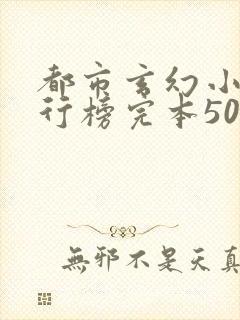 都市玄幻小
行榜完本50
無邪不是天真